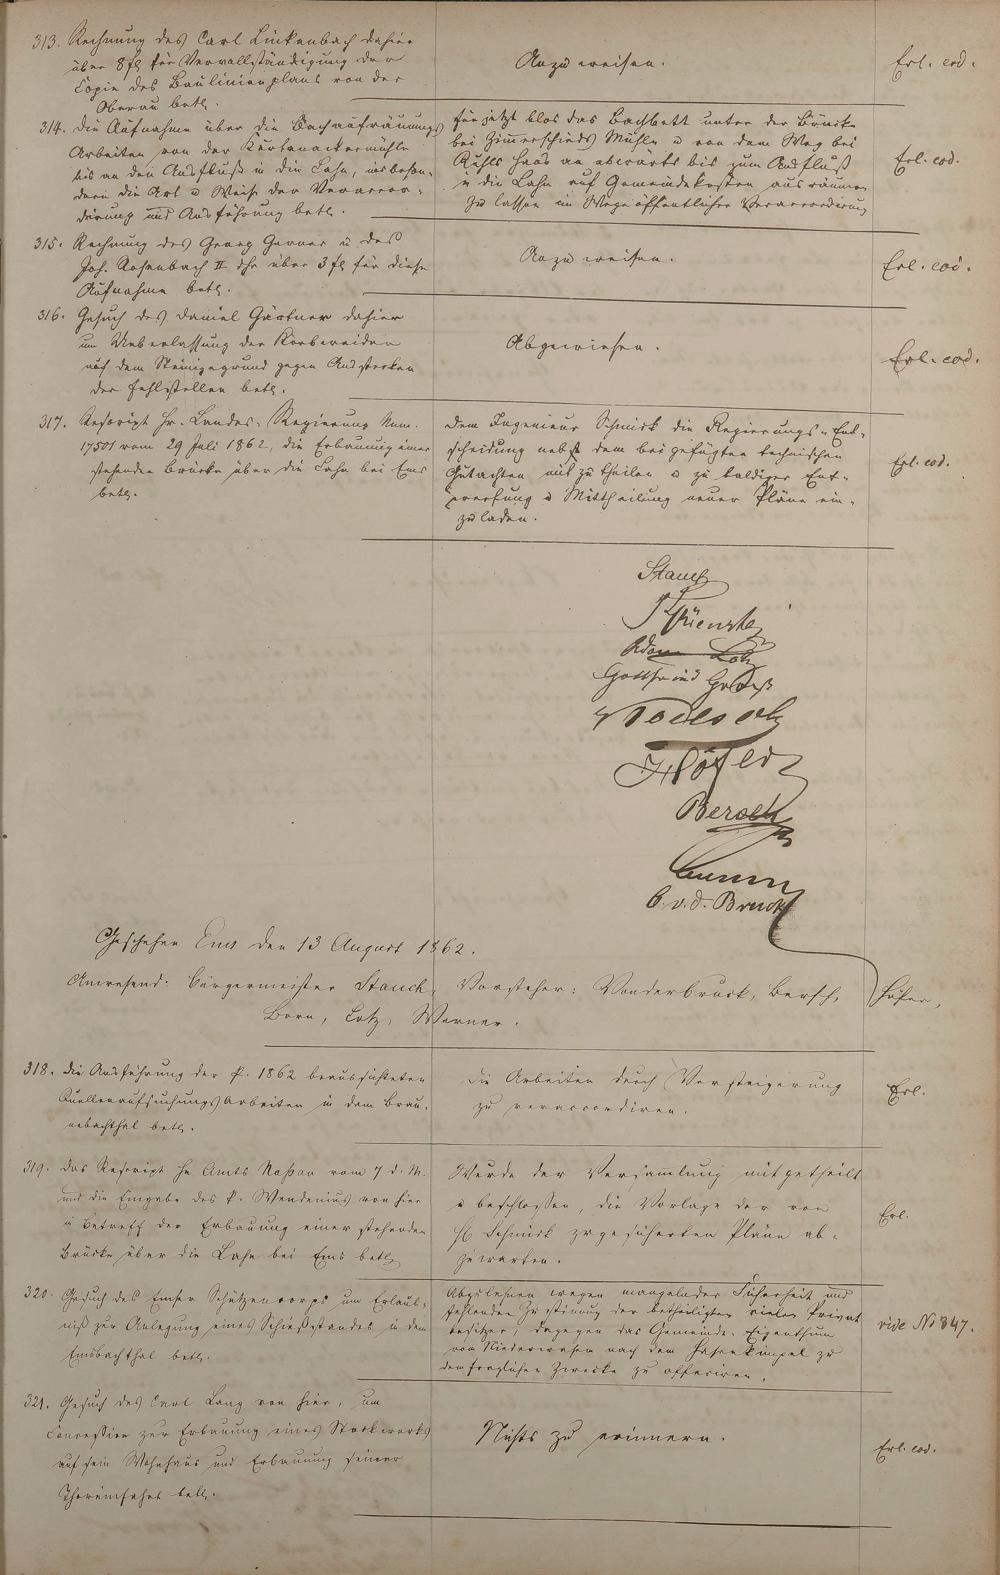 313. Rechnung des Carl Linkenbach dahier
über 8 fl für Vervollständigung der
Copie des Baulinienplans von der
Oberau betr.
Anzuweisen.
Erl. eod.
314. Die Aufnahme über die Bachaufräumungs
Arbeiten von der
bis an den Ausfluß in die Lahn, insbeson-
dere die Art u Weise der Veraccor-
dirung und Ausführung betr.
für jetzt blos das Bachbett unter der Brücke
bei Zimmerschieds Mühle u von dem Weg bei
Haus an abwärts bis zum Ausfluß
in die Lahn auf Gemeindekosten ausräumen
zu lassen im Wege öffentlicher Veraccordirung
Erl. eod.
315. Rechnung des Georg u des
Joh. Rosenbach II über 3 fl für diese
Aufnahme betr.
Anzuweisen.
Erl. eod.
316. Gesuch des Daniel Gärtner dahier
um Ueberlassung der Korbweiden
auf dem gegen Ausstecken
der Fehlstellen betr.
Abgewiesen.
Erl. eod.
317. Rescript Hr. Landes-Regierung Num.
17501 vom 29 Juli 1862, die Erbauung einer
stehenden Brücke über die Lahn bei Ems
betr.
Dem Ingenieur Schmick die Regierungs-Ent-
scheidung nebst dem beigefügten technischen
Gutachten mitzutheilen u zu baldiger Ent-
werfung u Mittheilung neuer Pläne ein-
zuladen.
Erl. eod.
Stauch
Adam Lotz
Gottfried
Höfer
Bersch
C. v. d. Bruck
Geschehen Ems den 13 August 1862.
Anwesend: Bürgermeister Stauch, Vorsteher: Vonderbruck, Bersch, Höfer,
Born, Lotz, Werner.
318. Die Ausführung der p. 1862 beabsichteten
Quellenaufsuchungs Arbeiten in dem Brau-
nebachthal betr.
Die Arbeiten durch Versteigerung
zu veraccordiren.
Erl.
319. Das Rescript Hr Amts Naßau vom 7 d. M.
und die Eingabe des p. von hier
in Betreff der Erbauung einer stehenden
Brücke über die Lahn bei Ems betr.
Wurde der Versamlung mitgetheilt
u beschlossen, die Vorlage der von
H. Schmick zugesicherten Pläne ab-
zuwarten.
Erl.
320. Gesuch des Emser Schützencorps um Erlaub-
niß zur Anlegung eines Schießstandes in dem
Emsbachthal betr.
Abzulehnen wegen mangelnder Sicherheit und
fehlender Zustimung der betheiligten vielen Privat
besitzer, dagegen das Gemeinde-Eigenthum
von nach dem zu
dem fraglichen Zwecke zu offeriren.
vide No 347.
321. Gesuch des Carl Lang von hier, um
Concession zur Erbauung eines Stockwerks
auf sein Wohnhaus und Erbauung seiner
Thoreinfahrt betr.
Nichts zu erinnern.
Erl. eod.